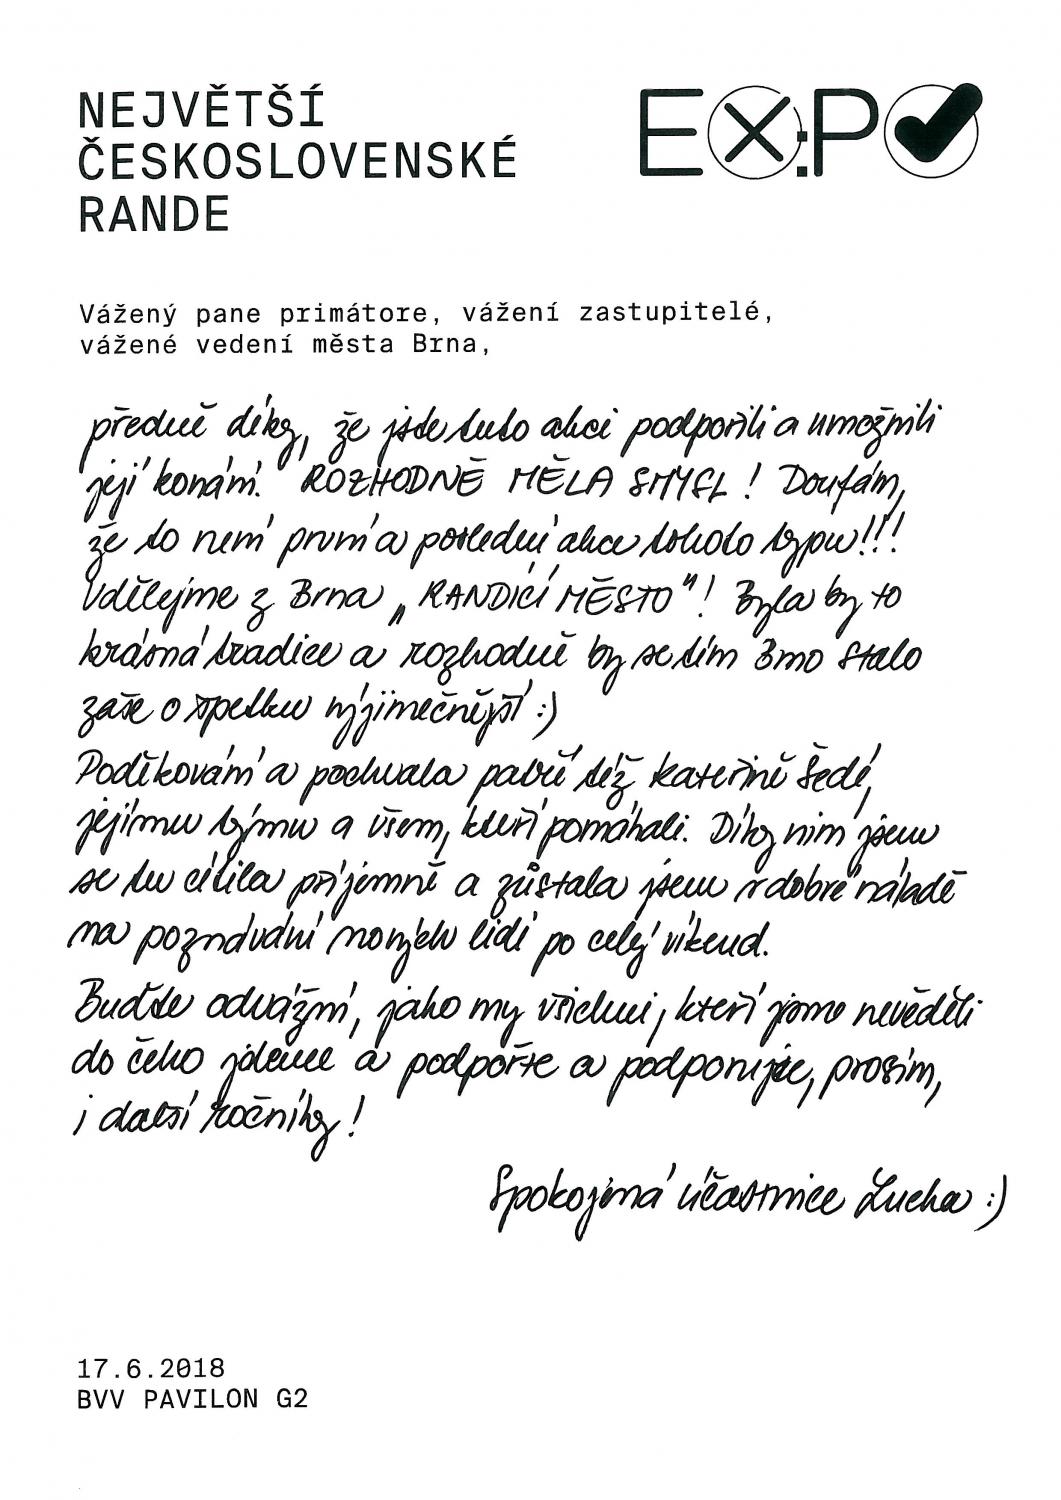 NEJVĚTŠÍ
ČESKOSLOVENSKÉ
RANDE
EX:PO
Vážený pane primátore, vážení zastupitelé,
vážené vedení města Brna,
předně díky, že jste tuto akci podpořili a umožnili
její konání. ROZHODNĚ MĚLA SMYSL! Doufám,
že to není první a poslední akce tohoto typu!!!
Udělejme z Brna „RANDÍCÍ MĚSTO"! Byla by to
krásná tradice a rozhodně by se tím Brno stalo
zase o špetku výjimečnější :)
Poděkování a pochvala patří též Kateřině Šedé,
jejímu týmu a všem, kteří pomáhali. Díky nim jsem
se tu cítila příjemně a zůstala jsem v dobré náladě
na poznávání nových lidí po celý víkend.
Buďte odvážní, jako my všichni, kteří jsme nevěděli
do čeho jdeme a podpořte a podporujte, prosím,
i další ročníky!
Spokojená účastnice Lucka :)
17.6.2018
BVV PAVILON G2